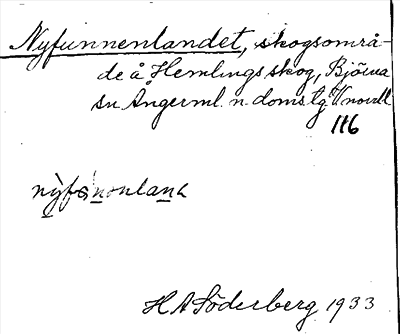 Nyfunnenlandet, skogsområ-
de å Hemlings skog, Björna
sn Ångerml. n. doms lg V norrl
116
nỳfo̤nonlanḷ
H A Söderberg 1933